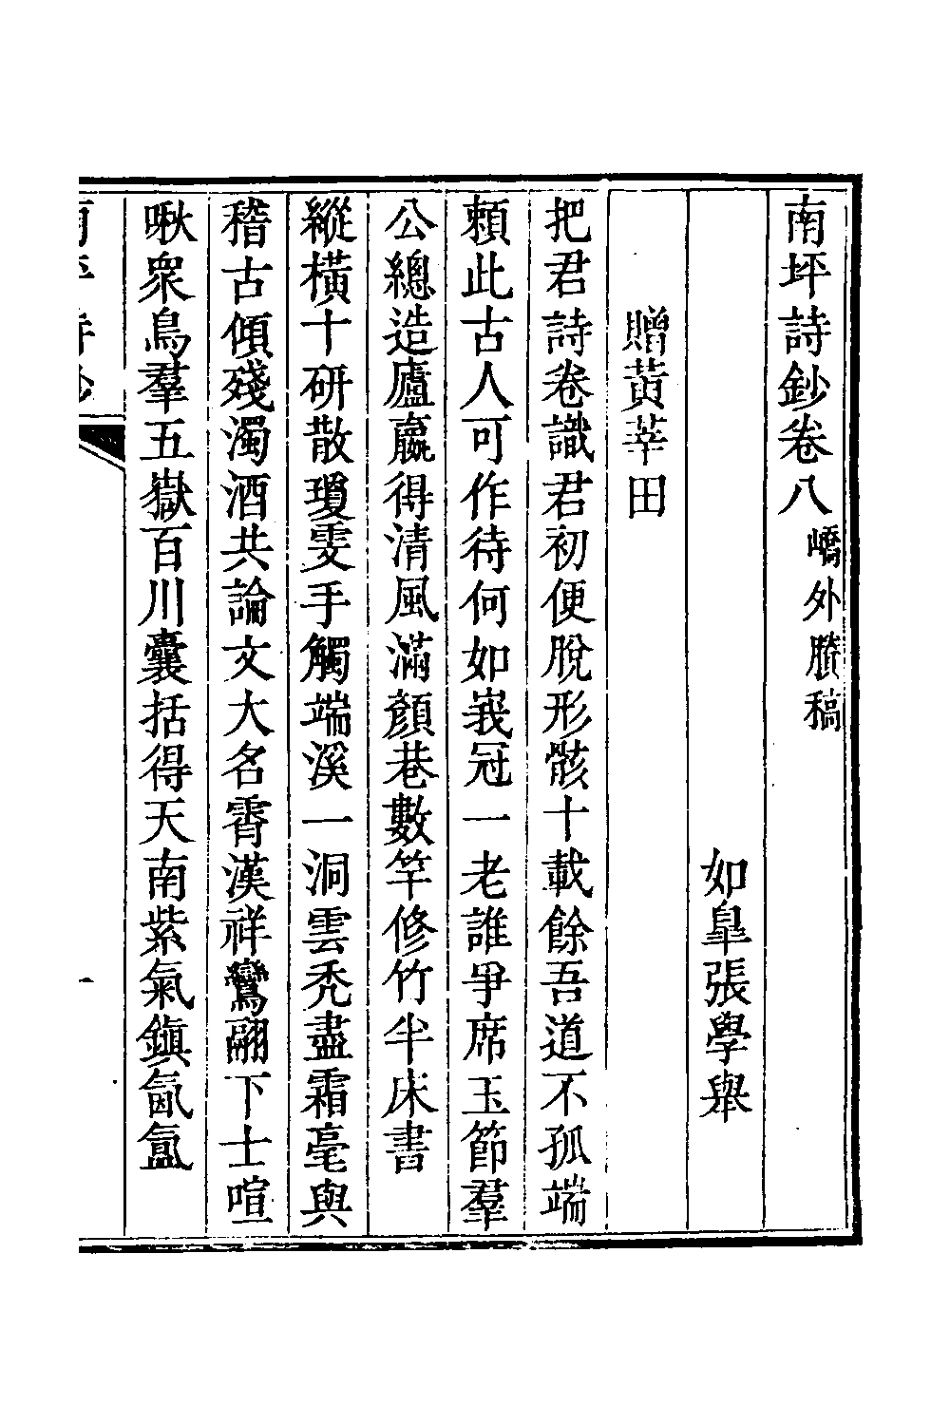 南坪詩鈔卷八嶠外賸稿
如臯張學舉
贈黃莘田
把君詩卷識君初便脫形骸十載餘吾道不孤端
賴此古人可作待何如峩冠一老誰爭席玉節羣
公總造廬嬴得清風滿顏巷數竿修竹半床書
縱橫十研散瓊雯手觸端溪一洞雲禿盡霜毫與
稽古傾殘濁酒共論文大名霄漢祥鸞翮下士喧
啾衆鳥羣五嶽百川囊括得天南紫氣鎭氤氳
一